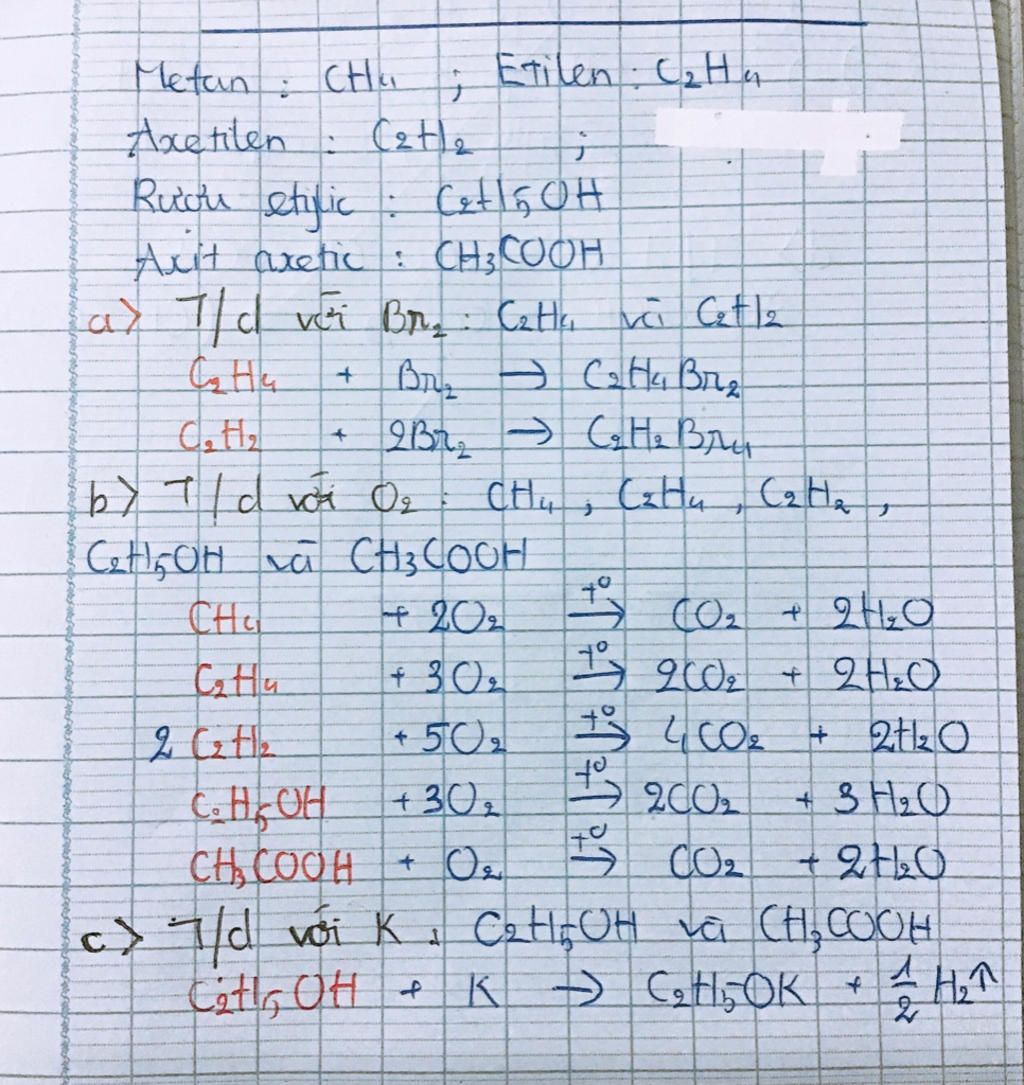 Metan : CH₄ ; Etilen : C₂H₄
Axetilen : C₂H₂ ;
Rượu etylic : C₂H₅OH
Axit axetic : CH₃COOH
a> T/d với Br₂ : C₂H₄ và C₂H₂
C₂H₄ + Br₂ → C₂H₄Br₂
C₂H₂ + 2Br₂ → C₂H₂Br₄
b> T/d với O₂ : CH₄ , C₂H₄ , C₂H₂ ,
C₂H₅OH và CH₃COOH
CH₄ + 2O₂ →(t°) CO₂ + 2H₂O
C₂H₄ + 3O₂ →(t°) 2CO₂ + 2H₂O
2 C₂H₂ + 5O₂ →(t°) 4CO₂ + 2H₂O
C₂H₅OH + 3O₂ →(t°) 2CO₂ + 3H₂O
CH₃COOH + O₂ →(t°) CO₂ + 2H₂O
c> T/d với K : C₂H₅OH và CH₃COOH
C₂H₅OH + K → C₂H₅OK + 1/2 H₂↑